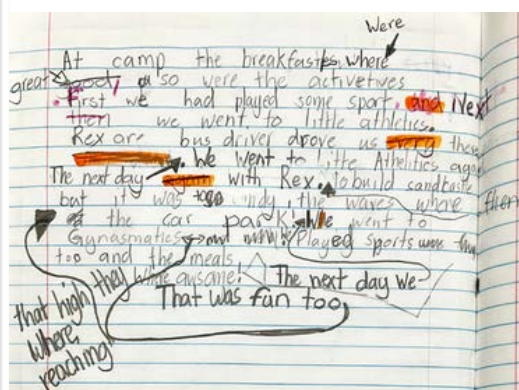 Were
At camp the breakfastes where
great good, so were the activetives
First we had played some sport. and Next
then we went to little athletics.
Rex are bus driver drove us every there
. We went to litte Athelitics again
The next day again with Rex. To build candcastle
but it was to windy the waves where then
at the car park. We went to
Gynasmatics and played sports were
too and the meals
they where awsome! The next day we
That was fun too
that high
where
reaching